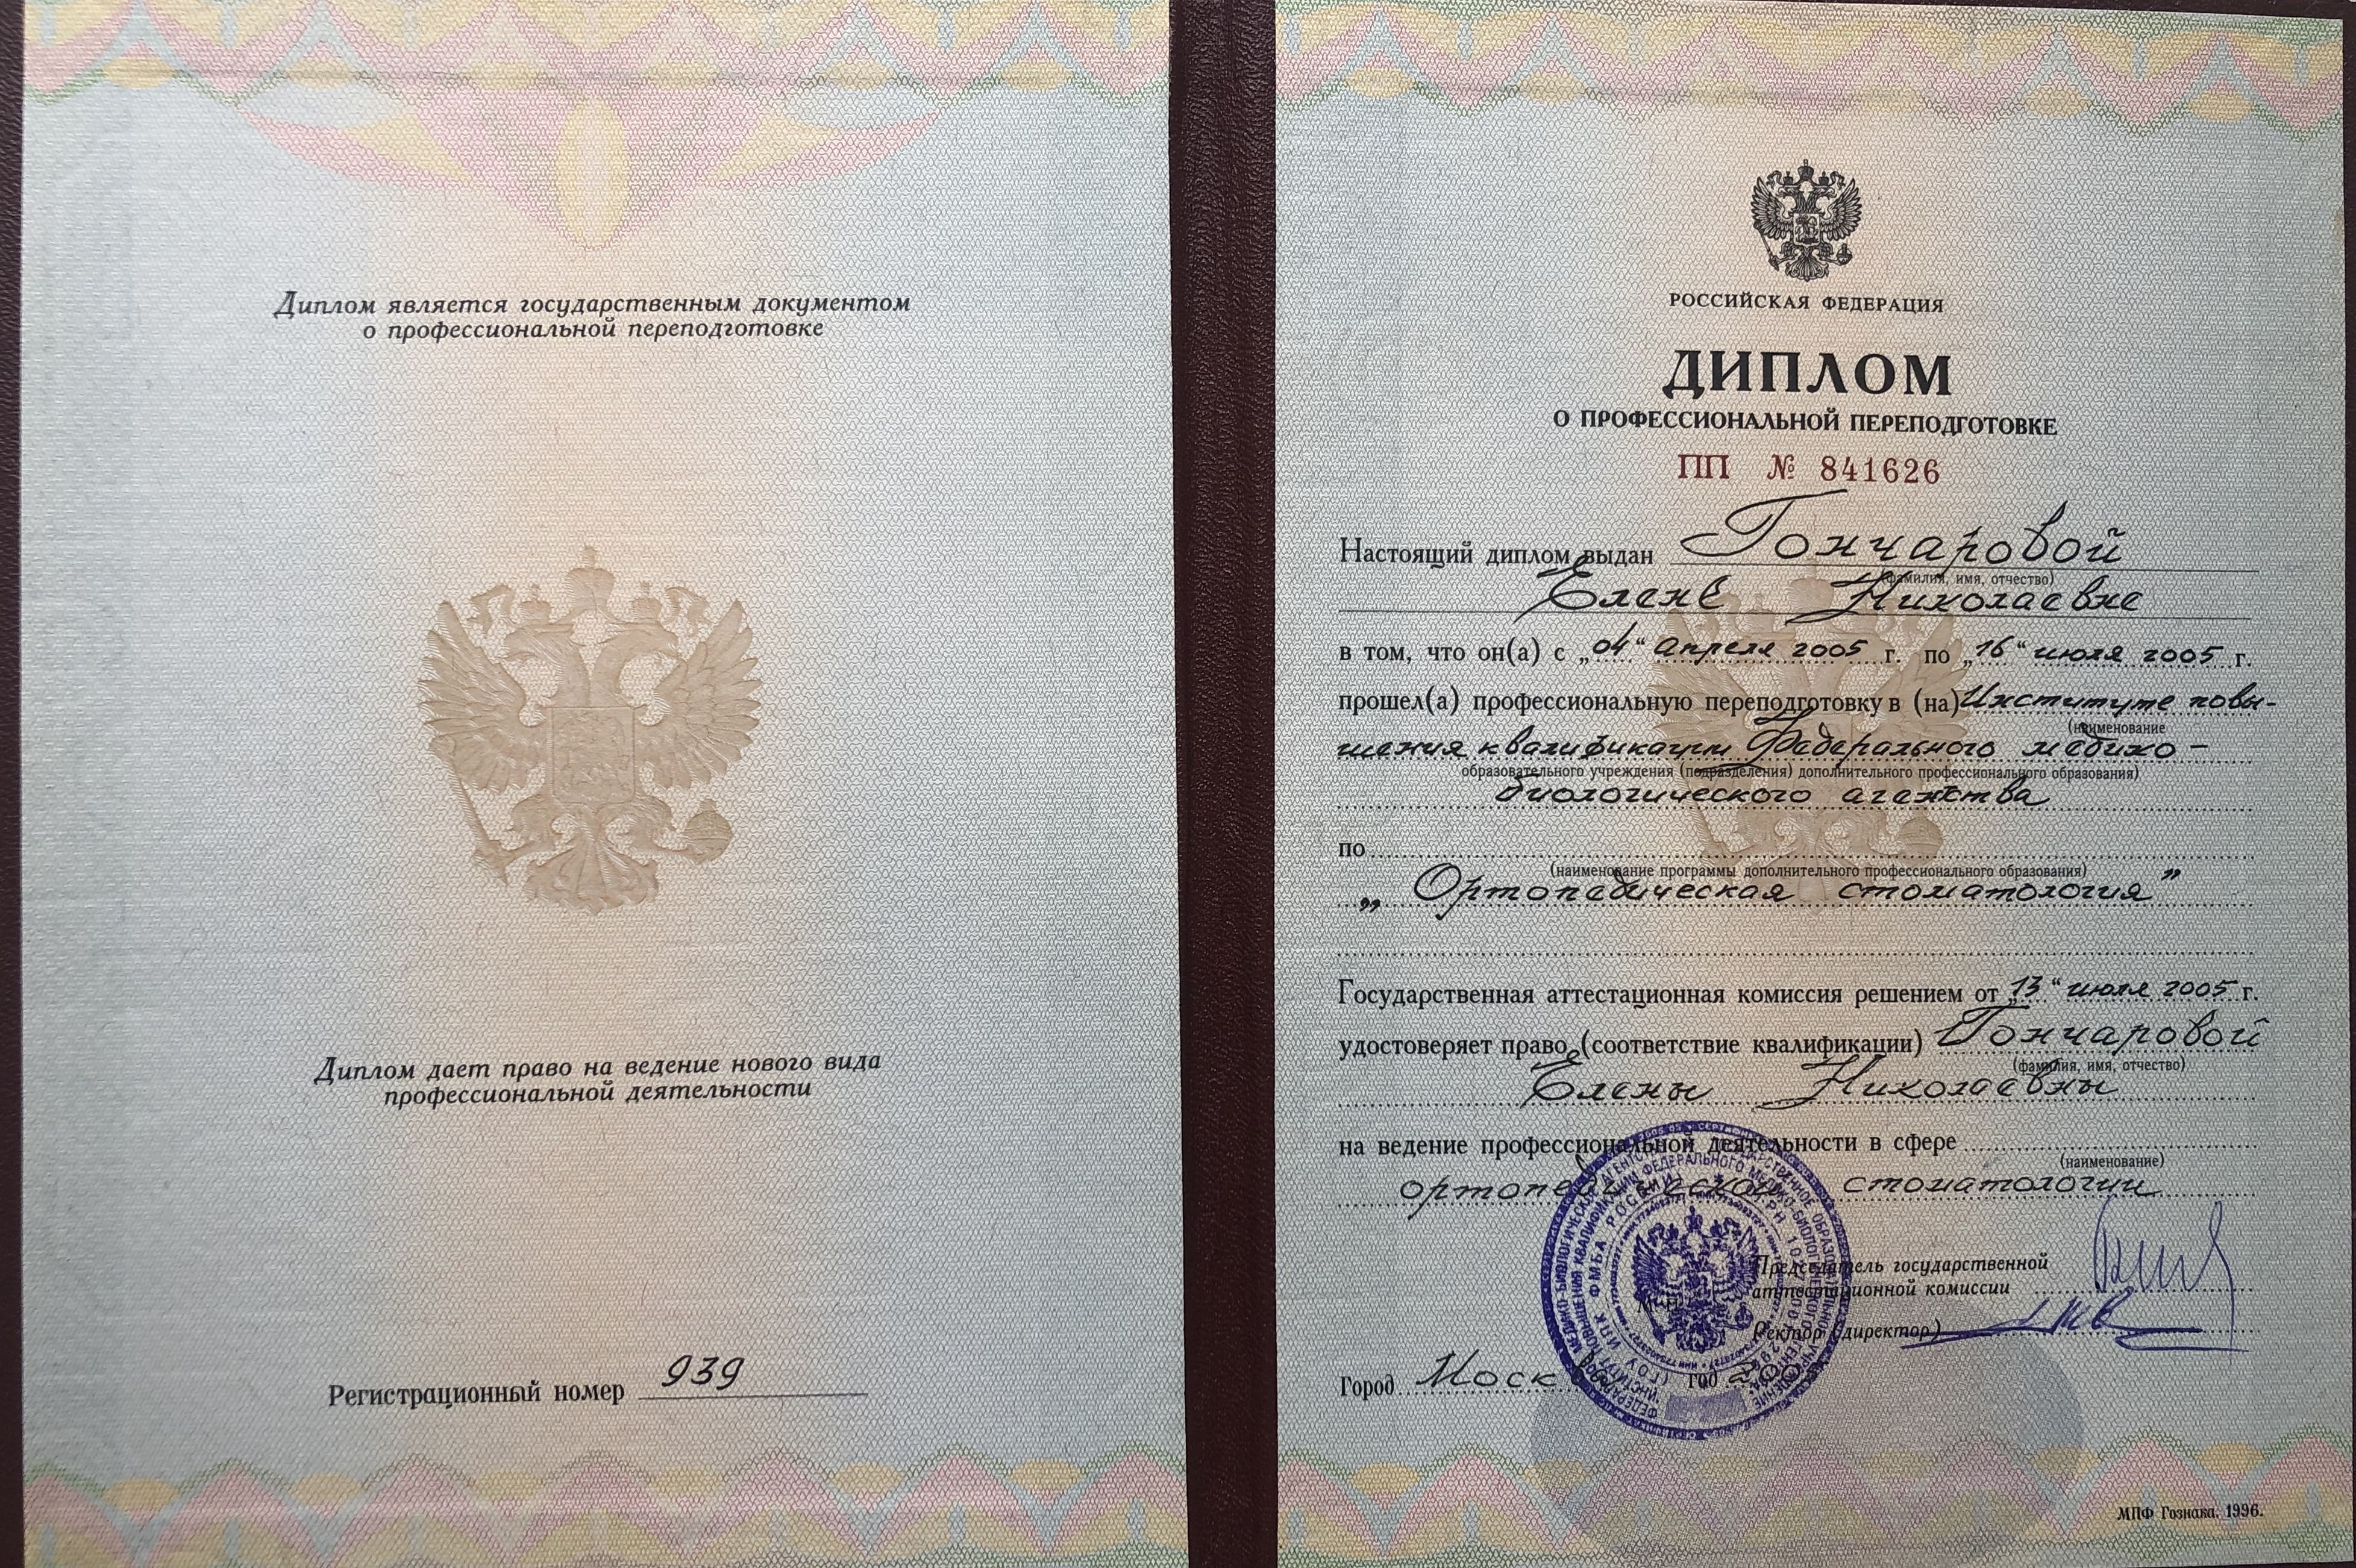 Диплом является государственным документом
о профессиональной переподготовке
Диплом дает право на ведение нового вида
профессиональной деятельности
Регистрационный номер 939
РОССИЙСКАЯ ФЕДЕРАЦИЯ
ДИПЛОМ
О ПРОФЕССИОНАЛЬНОЙ ПЕРЕПОДГОТОВКЕ
ПП № 841626
Настоящий диплом выдан Гончаровой
(фамилия, имя, отчество)
Елене Николаевне
в том, что он(а) с „04“ апреля 2005 г. по „16“ июля 2005 г.
прошел(а) профессиональную переподготовку в (на) Институте повы-
(наименование
шения квалификации Федерального медико-
образовательного учреждения (подразделения) дополнительного профессионального образования)
биологического агентства
по
(наименование программы дополнительного профессионального образования)
„Ортопедическая стоматология”
Государственная аттестационная комиссия решением от „13“ июля 2005 г.
удостоверяет право (соответствие квалификации) Гончаровой
(фамилия, имя, отчество)
Елены Николаевны
на ведение профессиональной деятельности в сфере
(наименование)
ортопедической стоматологии
Председатель государственной
аттестационной комиссии
Ректор (директор)
Город Москва год
ФМБА РОССИИ
МПФ Гознака. 1996.